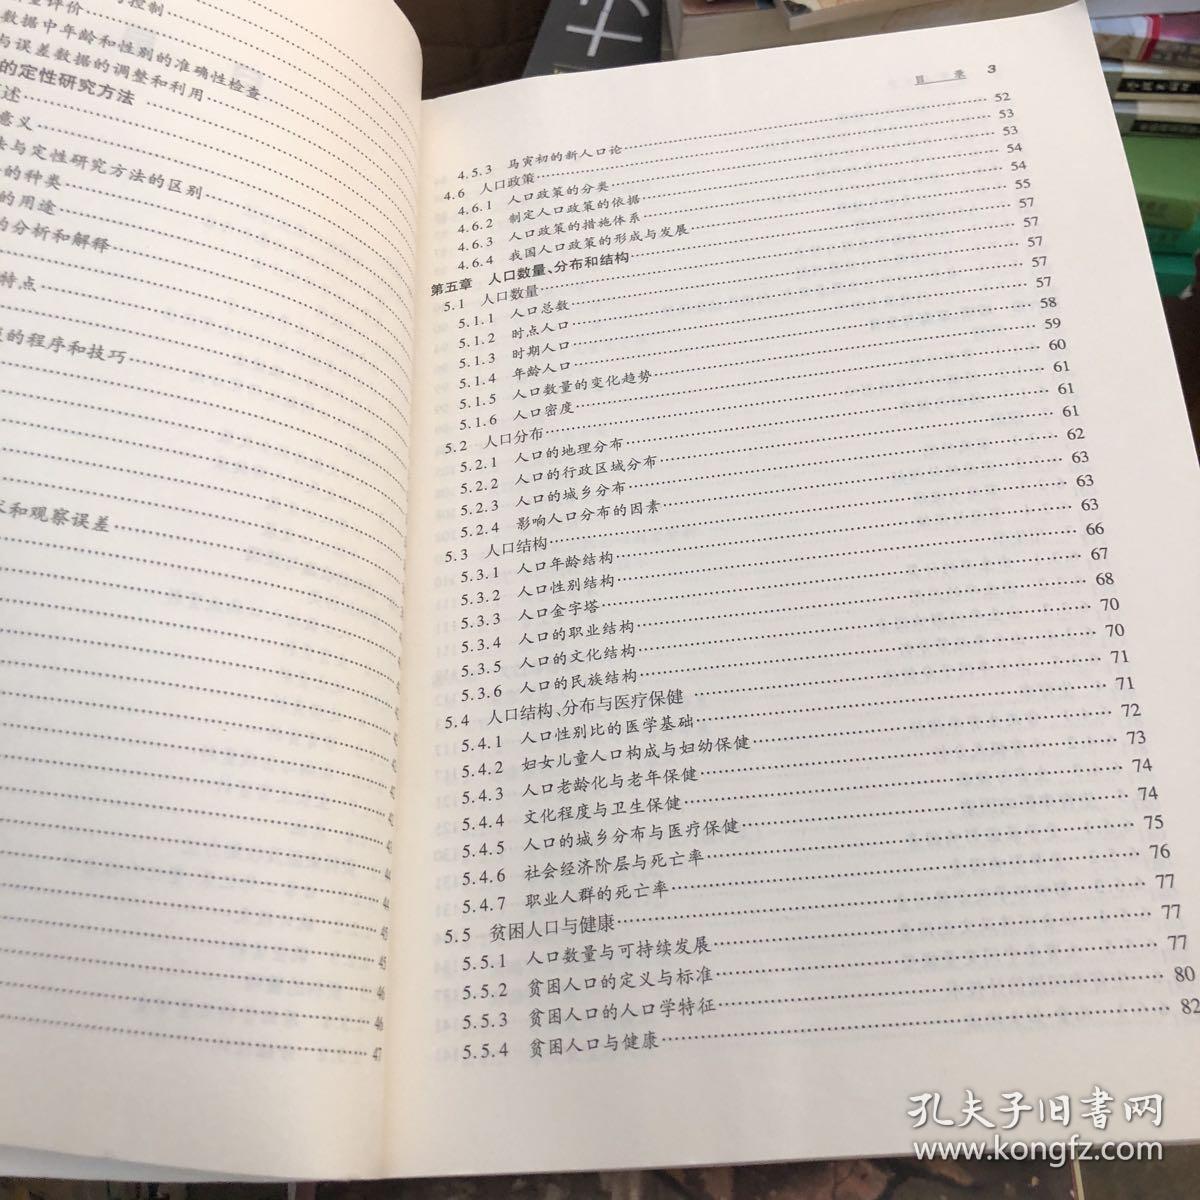 控制
评价
数据中年龄和性别的准确性检查
与误差数据的调整和利用
的定性研究方法
述
意义
法与定性研究方法的区别
的种类
的用途
的分析和解释
特点
的程序和技巧
和观察误差
43
44
44
45
45
46
46
47
目 录 3
4.5.3 马寅初的新人口论 52
4.6 人口政策 53
4.6.1 人口政策的分类 53
4.6.2 制定人口政策的依据 54
4.6.3 人口政策的措施体系 54
4.6.4 我国人口政策的形成与发展 55
第五章 人口数量、分布和结构 57
5.1 人口数量 57
5.1.1 人口总数 57
5.1.2 时点人口 57
5.1.3 时期人口 57
5.1.4 年龄人口 58
5.1.5 人口数量的变化趋势 59
5.1.6 人口密度 60
5.2 人口分布 61
5.2.1 人口的地理分布 61
5.2.2 人口的行政区域分布 61
5.2.3 人口的城乡分布 62
5.2.4 影响人口分布的因素 63
5.3 人口结构 63
5.3.1 人口年龄结构 63
5.3.2 人口性别结构 66
5.3.3 人口金字塔 67
5.3.4 人口的职业结构 68
5.3.5 人口的文化结构 70
5.3.6 人口的民族结构 70
5.4 人口结构、分布与医疗保健 71
5.4.1 人口性别比的医学基础 71
5.4.2 妇女儿童人口构成与妇幼保健 72
5.4.3 人口老龄化与老年保健 73
5.4.4 文化程度与卫生保健 74
5.4.5 人口的城乡分布与医疗保健 74
5.4.6 社会经济阶层与死亡率 75
5.4.7 职业人群的死亡率 76
5.5 贫困人口与健康 77
5.5.1 人口数量与可持续发展 77
5.5.2 贫困人口的定义与标准 77
5.5.3 贫困人口的人口学特征 80
5.5.4 贫困人口与健康 82
孔夫子旧书网
www.kongfz.com